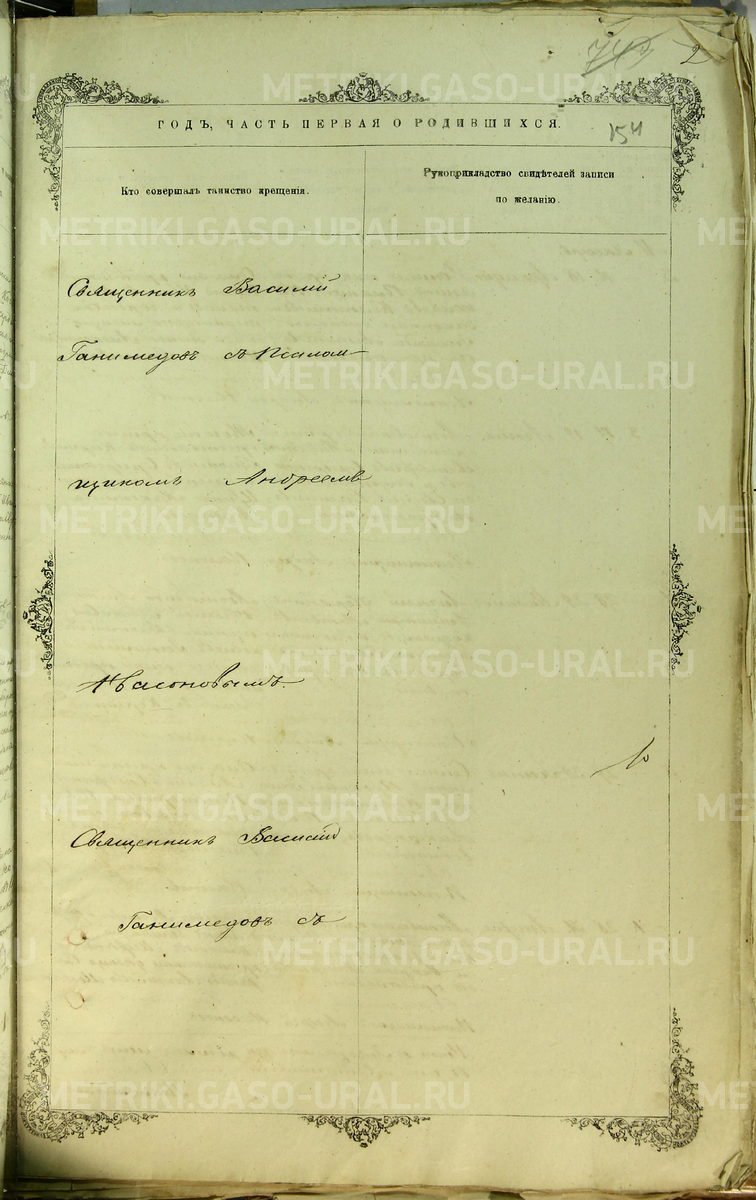 2
ГОДЪ, ЧАСТЬ ПЕРВАЯ О РОДИВШИХСЯ.
154
Кто совершалъ таинство крещенія.
Рукоприкладство свидѣтелей записи
по желанію.
Священникъ Василій
Ганимедовъ съ Псалом-
щикомъ Андреемъ
Священникъ Василій
Ганимедовъ съ
METRIKI.GASO-URAL.RU